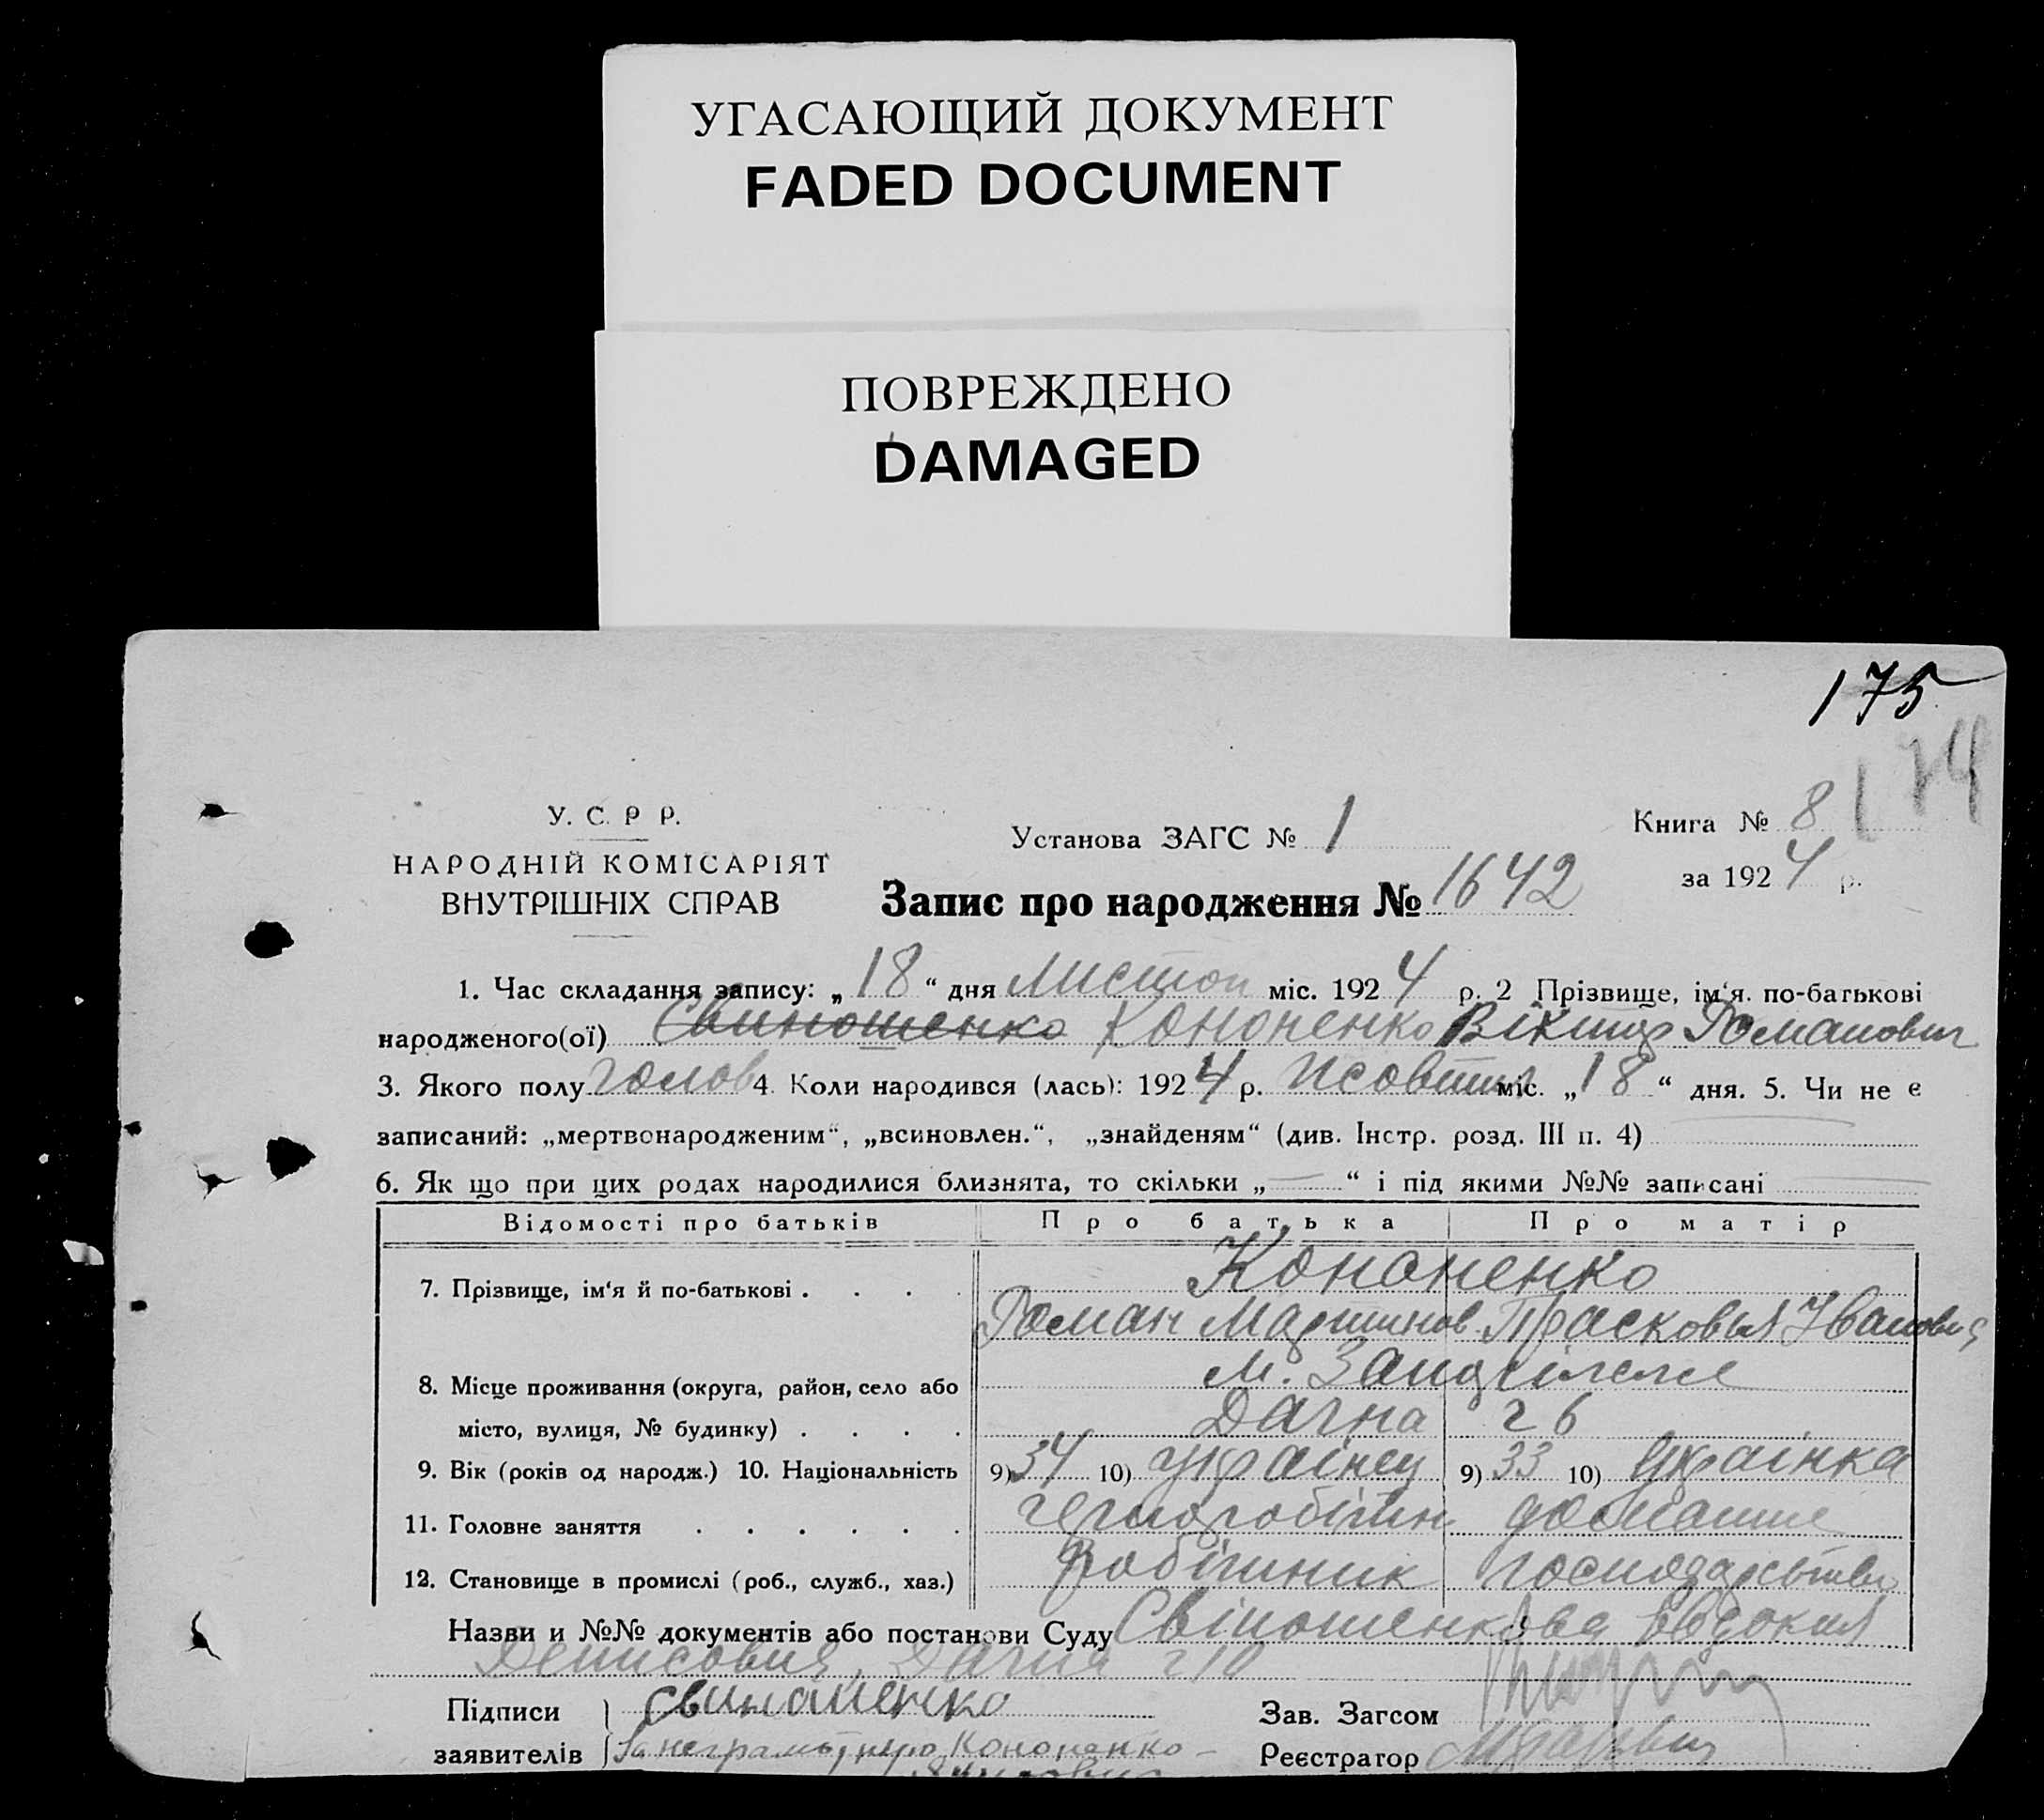 УГАСАЮЩИЙ ДОКУМЕНТ
FADED DOCUMENT
ПОВРЕЖДЕНО
DAMAGED
175
174
У. С. Р Р.
НАРОДНІЙ КОМІСАРІЯТ
ВНУТРІШНІХ СПРАВ
Установа ЗАГС № 1
Книга № 8
за 1924 р.
Запис про народження № 1642
1. Час складання запису: „ 18 “ дня Листоп міс. 1924 р. 2 Прізвище, ім‘я. по-батькові
народженого(ої) Свиношенко Кононенко Віктор Романович
3. Якого полу голов 4. Коли народився (лась): 1924 р. Жовтня міс. „ 18 “ дня. 5. Чи не є
записаний: „мертвонародженим“, „всиновлен.“, „знайденям“ (див. Інстр. розд. III п. 4)
6. Як що при цих родах народилися близнята, то скільки „ — “ і під якими №№ записані
Відомості про батьків Про батька Про матір
7. Прізвище, ім‘я й по-батькові . . . . Кононенко
Роман Мартинов Прасковья Івановна
8. Місце проживання (округа, район, село або м.
місто, вулиця, № будинку) . . . . Дачна 26
9. Вік (років од народж.) 10. Національність 9) 34 10) українец 9) 33 10) Українка
11. Головне заняття . . . . . . чорноробітн домашнє
12. Становище в промислі (роб., служб., хаз.) Робітник господарство
Назви и №№ документів або постанови Суду Свіношенкова Євдокия
Денисовна, Дачна
Підписи Свиношенко
Зав. Загсом
заявителів За неграмотную Кононенко
Реєстратор